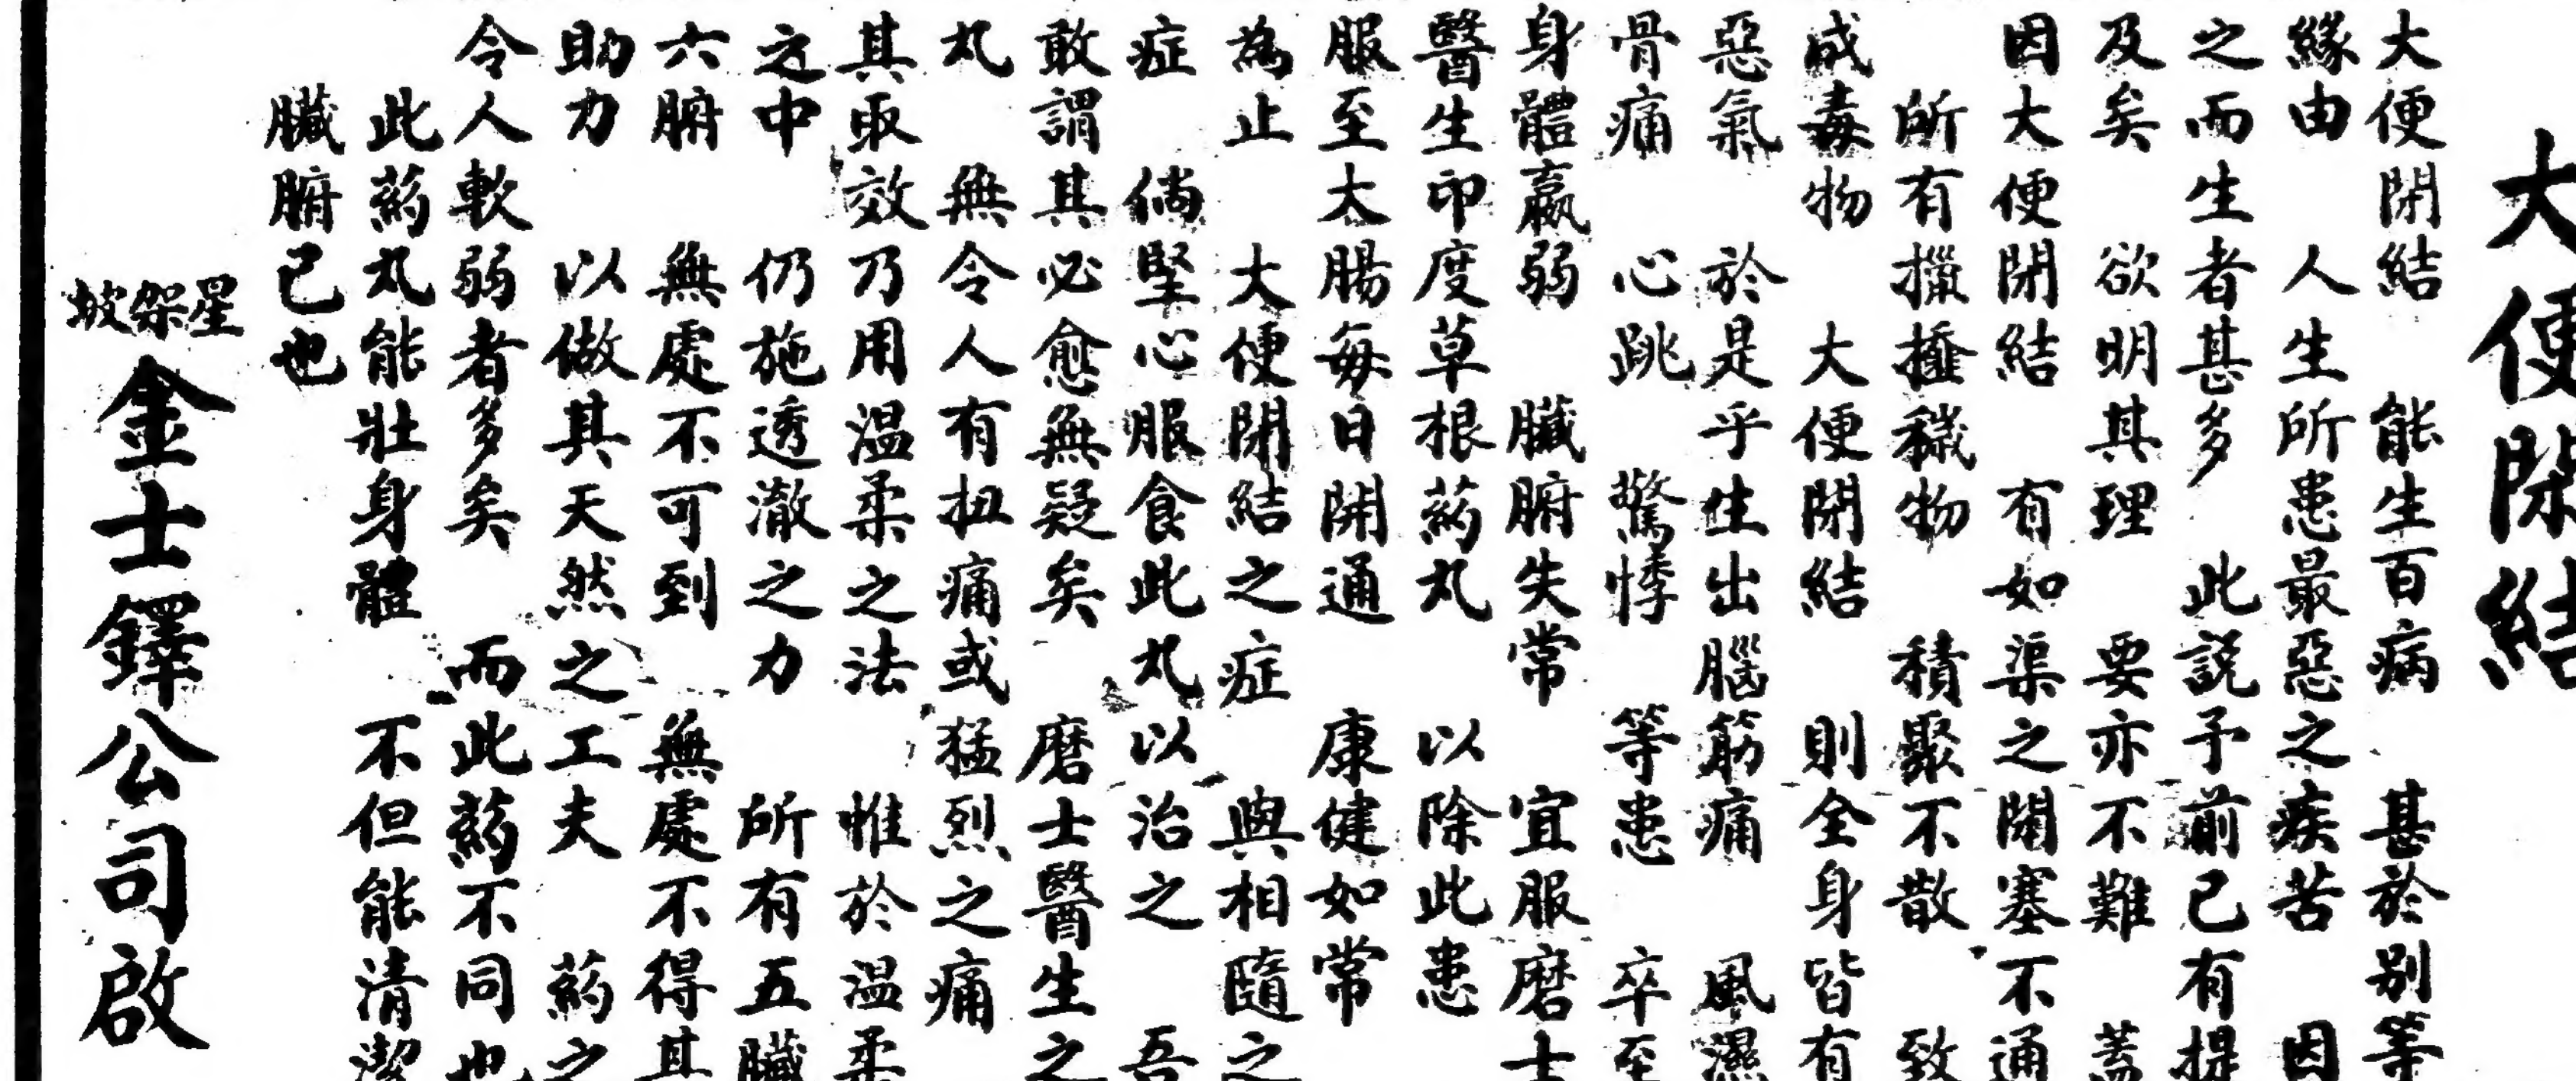 大便閉結
大便閉結 能生百病 甚於别等
緣由 人生所患最惡之疾苦 因
之而生者甚多 此説予前已有提
及矣 欲明其理 要亦不難 蓋
因大便閉結 有如渠之閉塞不通
所有𢶍擓穢物 積聚不散 致
成毒物 大便閉結 則全身皆有
惡氣 於是乎生出腦筋痛 風濕
骨痛 心跳 驚悸 等患 卒至
身體羸弱 臟腑失常 宜服磨士
醫生印度草根葯丸 以除此患
服至大腸每日開通 康健如常
為止 大便閉結之症 與相隨之
症 倘堅心服食此丸以治之 吾
敢謂其必愈無疑矣 磨士醫生之
丸 無令人有扭痛或猛烈之痛
其取效乃用温柔之法 惟於温柔
之中 仍施透澈之力 所有五臟
六腑 無處不可到 無處不得其
助力 以做其天然之工夫 葯之
令人軟弱者多矣 而此葯不同也
此葯丸能壯身體 不但能清潔
臟腑已也
星架坡
金士鐸公司啟